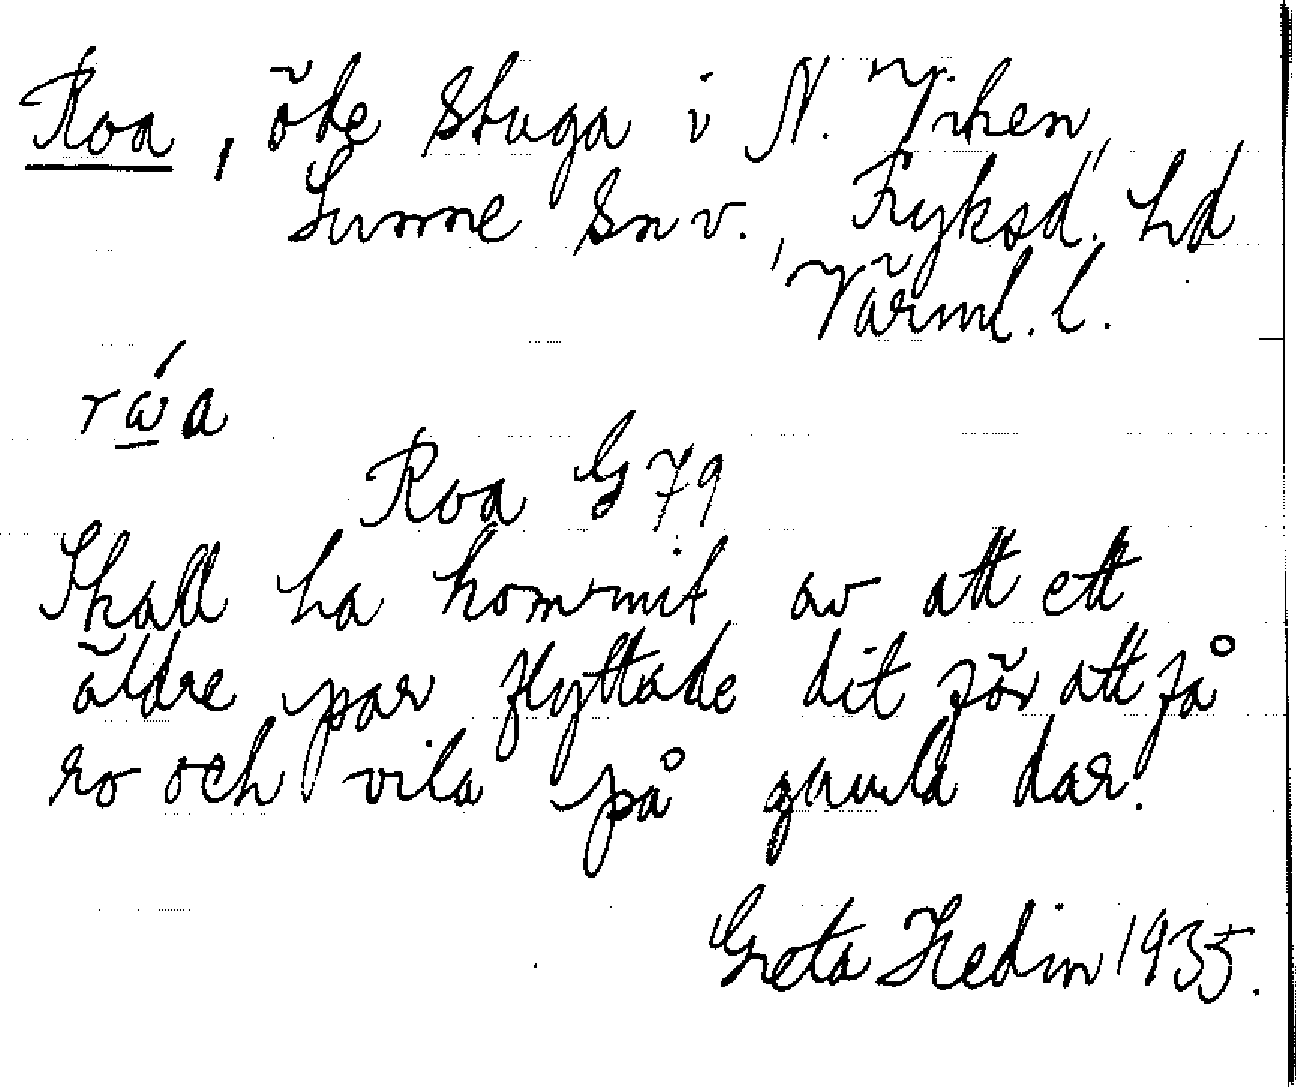 Roa, öde stuga i N. Viken,
Sunne Snv., Fryksd. hd
Värml. l.
rώa
Roa G 79
Skall ha kommit av att ett
äldre par flyttade dit för att få
ro och vila på gamla dar.
Greta Hedin 1935.